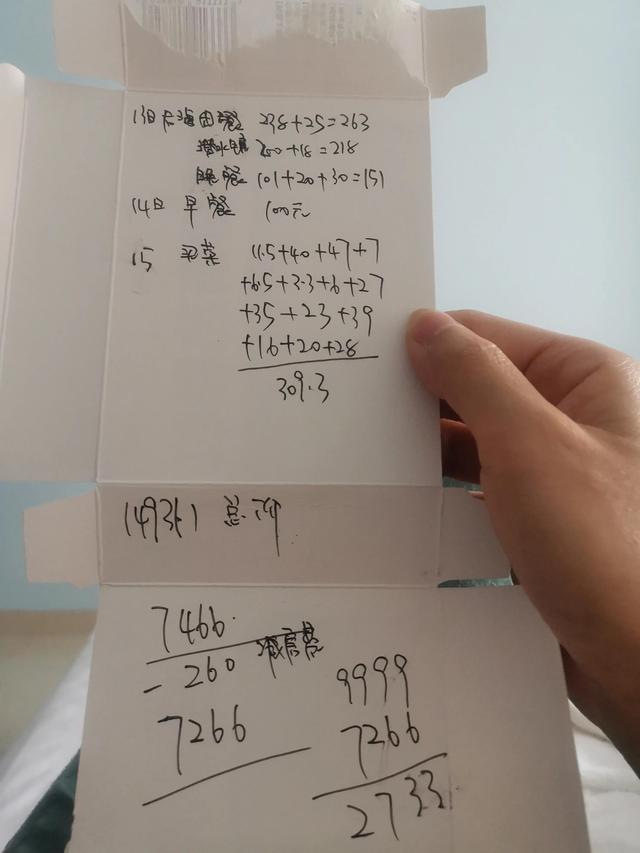 13日 238+25=263
潜水镜 200+18=218
晚餐 101+20+30=151
14日 早餐 100元
15 买菜 11.5+40+47+7
+6.5+3.3+6+27
+35+23+39
+16+20+28
309.3
总计
7466
-260
7266
9999
7266
2733